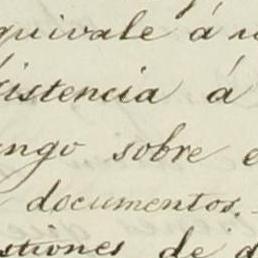 equivale á
istencia á
ngo sobre
documentos.
stiones de